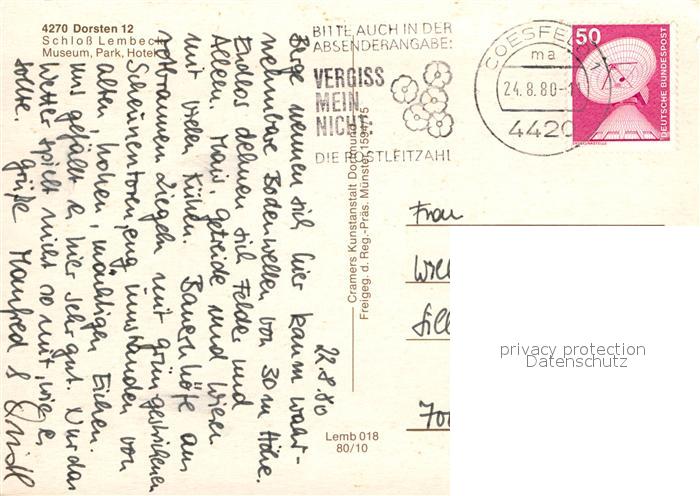 4270 Dorsten 12
Schloß Lembeck
Museum, Park, Hotel
BITTE AUCH IN DER
ABSENDERANGABE:
VERGISS
MEIN
NICHT:
DIE POSTLEITZAHL
COESFELD 1
ma
24.8.80-1
4420
50
DEUTSCHE BUNDESPOST
ERDEFUNKSTELLE
Cramers Kunstanstalt Dortmund
Freigeg. d. Reg.-Präs. Münster 1591/75
22.8.80
Berge nennen sich hier kaum wahr-
nehmbare Bodenwellen von 30 m Höhe.
Endlos dehnen sich Felder und
Alleen. Mais, Getreide und Wiesen
mit vielen Kühen. Bauernhöfe aus
rotbraunen Ziegeln mit grün gestrichenen
Scheunentoren, eng umstanden von
alten, hohen, mächtigen Eichen.
Uns gefällt es hier sehr gut. Nur das
Wetter spielt nicht so mit, wie es
sollte. Grüße Manfred &
Frau
Will
Sill
700
Lemb 018
80/10
privacy protection
Datenschutz